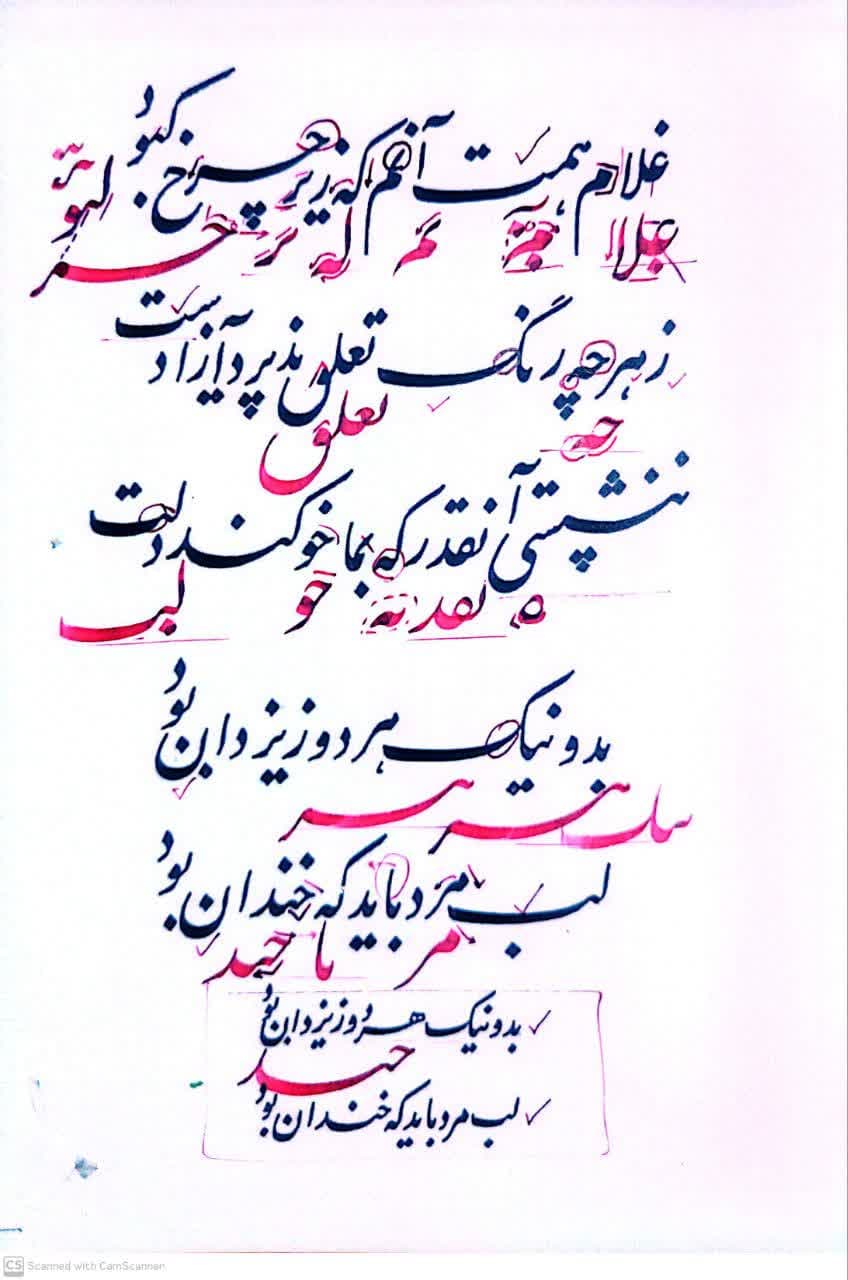 غلام همت آنم که زیر چرخ کبود
غلا همة نم که یر چر کبو یر
زهر چه رنگ تعلق پذیرد آزاد است
چه
تعلق
ننشستی آنقدر که بما خو کند دلت
ه نقد به خو لب
بد و نیک هر دو ز یزدان بود
یک هر هر
لب مرد باید که خندان بود
مر با خند
بد و نیک هر دو ز یزدان بود
خند
لب مرد باید که خندان بود
CS Scanned with CamScanner